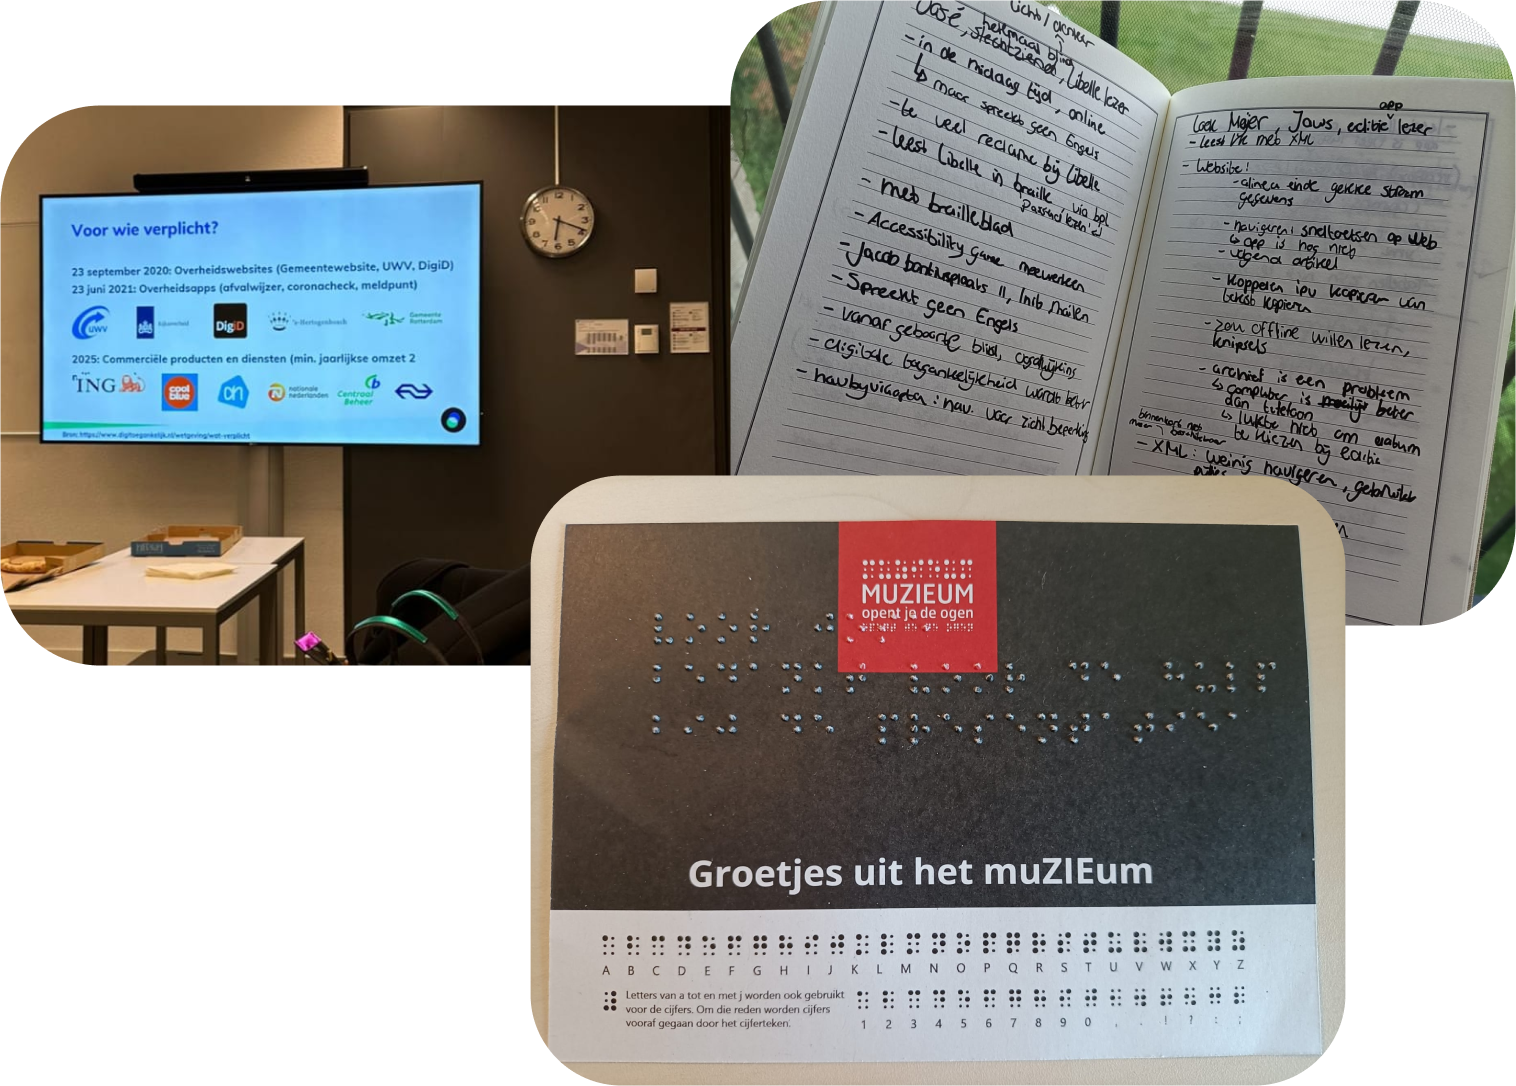 Voor wie verplicht?
23 september 2020: Overheidswebsites (Gemeentewebsite, UWV, DigiD)
23 juni 2021: Overheidsapps (afvalwijzer, coronacheck, meldpunt)
UWV
Rijksoverheid
DigiD
's-Hertogenbosch
Gemeente
Rotterdam
2025: Commerciële producten en diensten (min. jaarlijkse omzet 2
ING
cool
blue
ah
nationale
nederlanden
Centraal
Beheer
Bron: https://www.digitoegankelijk.nl/wetgeving/wat-verplicht
José, helemaal blind
slechtziend, Libelle lezer
- in de middag tijd, online
maar spreekt geen Engels
- te veel reclame bij Libelle
- leest Libelle in braille via
Passend lezen
- met brailleblad
- Accessibility game meewerken
- Spreekt geen Engels
- vanaf geboorte blind,
- digitale toegankelijkheid wordt beter
app
Meijer, Jaws, editie lezer
- leest VK met XML
- Website:
- alinea einde gekke stream
gegevens
- navigeren: sneltoetsen op web
app is nog niet
- volgend artikel
- koppelen ipv kopieren van
tekst kopieren
- zou offline willen lezen,
knipsels
- archief is een probleem
computer is beter
dan telefoon
lukte niet om datum
te kiezen bij editie
- XML: weinig navigeren, gebruikt
MUZIEUM
opent je de ogen
Groetjes uit het muZIEum
A B C D E F G H I J K L M N O P Q R S T U V W X Y Z
Letters van a tot en met j worden ook gebruikt
voor de cijfers. Om die reden worden cijfers
vooraf gegaan door het cijferteken.
1 2 3 4 5 6 7 8 9 0 , . ! ? : ;